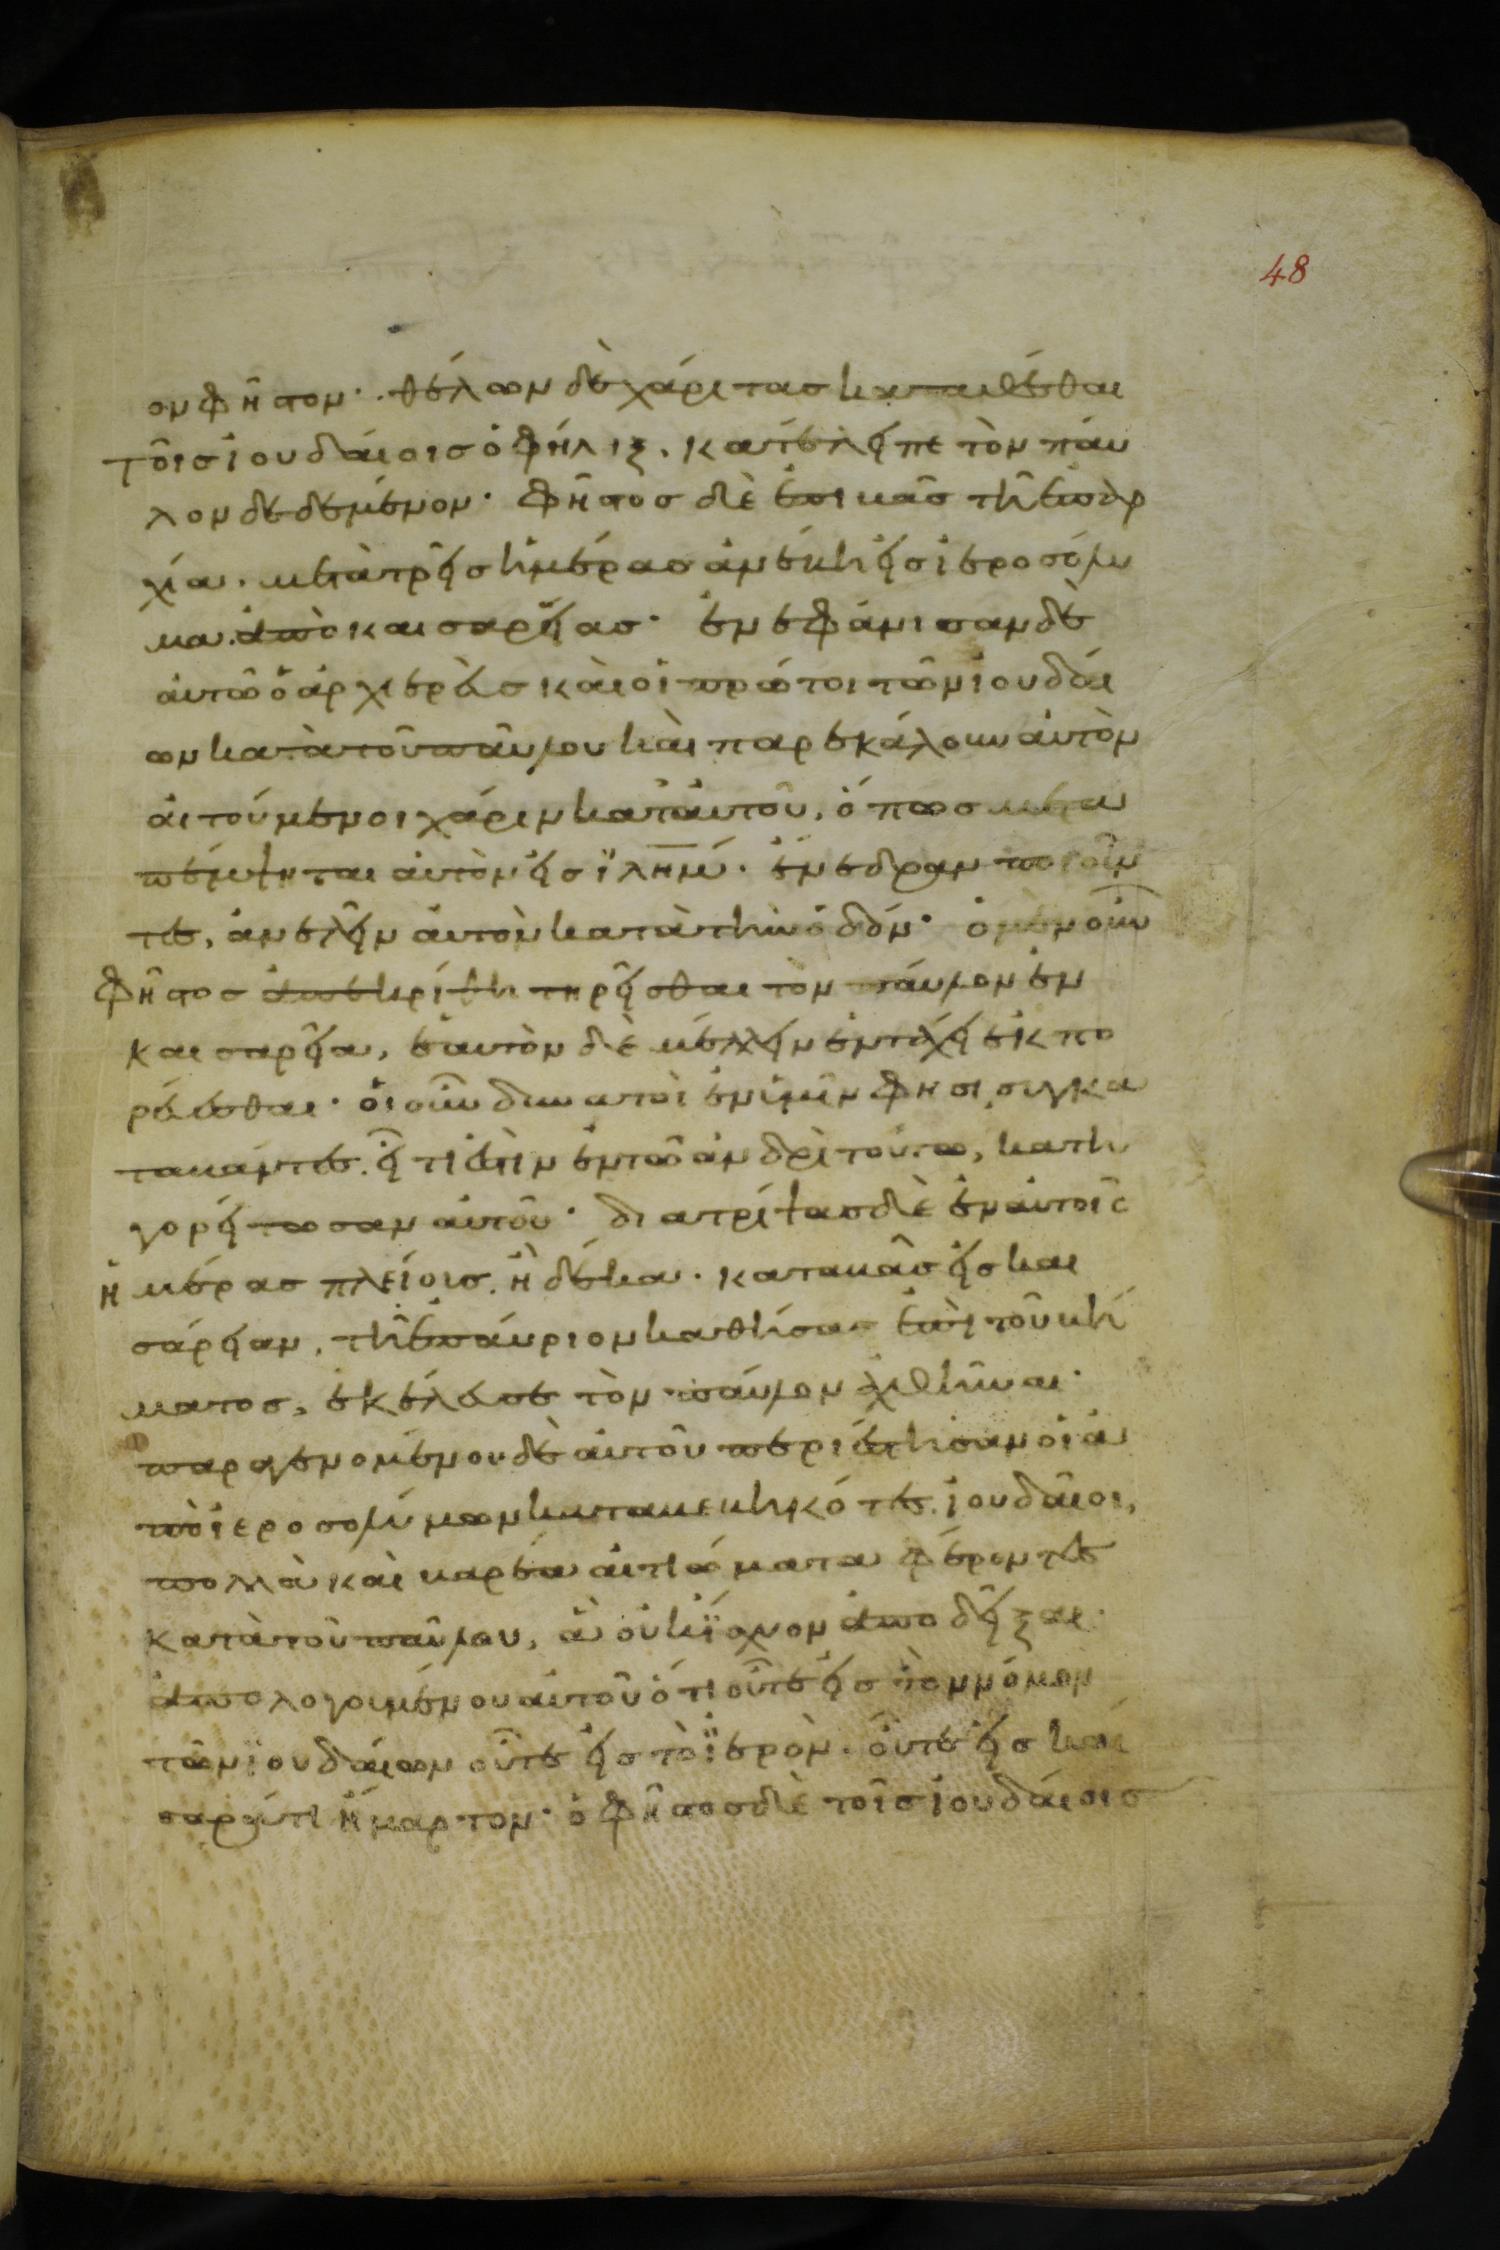 48
ον φῆστον· θέλων δὲ χάριτας καταθέσθαι
τοῖς ἰουδάιοις ὁ φήλιξ. κατέλιπε τὸν πάυ
λον δεδεμένον· φῆστος δὲ ἐπιβὰς τῆ ἐπαρ
χία. μετὰ τρεῖς ἡμέρας ἀνέβη εἰς ἱεροσόλυ
μα ἀπὸ καισαρείας· ἐνεφάνισαν δὲ
ἀυτῶ ὁ ἀρχιερεὺς καὶ οἱ πρώτοι τῶν ἰουδάι
ων κατὰ τοῦ παῦλου καὶ παρεκάλουν ἀυτὸν
ἀιτούμενοι χάριν κατ' ἀυτοῦ, ὅπως μετα
πέμψηται ἀυτὸν εἰς ϊλημ. ἐνέδραν ποιοῦν
τες, ἀνελεῖν ἀυτὸν κατὰ τὴν ὁδόν· ὁ μὲν οὖν
φῆστος ἀπεκρίθη τηρεῖσθαι τὸν πάυλον ἐν
καισαρεία, ἑαυτὸν δὲ μέλλειν ἐν τάχει ἐκπο
ρεύεσθαι· ὁι οὖν δυνατοὶ ἐν ὑμῖν φησι συγκα
ταβάντες. εἴ τι ἐστὶν ἐν τῶ ἀνδρὶ τούτω, κατη
γορείτωσαν ἀυτοῦ· διατρίψας δὲ ἐν ἀυτοῖς
ἡμέρας πλείοις. ἢ δέκα. καταβὰς εἰς και
σάρειαν, τῆ ἐπάυριον καθίσας ἐπὶ τοῦ βή
ματος, ἐκέλευσε τὸν πάυλον ἀχθῆναι·
παραγενομένου δὲ ἀυτοῦ περιέστησαν οἱ ἀ
πὸ ἱεροσολύμων καταβεβηκότες ἰουδαῖοι,
πολλὰ καὶ βαρέα ἀιτιώματα φέροντες
κατὰ τοῦ παῦλου, ἃ οὐκ ἴσχυον ἀποδεῖξαι.
ἀπολογουμένου ἀυτοῦ ὅτι οὔτε εἰς τὸν νόμον
τῶν ϊουδάιων οὔτε εἰς τὸ ϊερὸν. οὔτε εἰς καί
σαρά τι ἥμαρτον· ὁ φῆστος δὲ τοῖς ἰουδάιοις